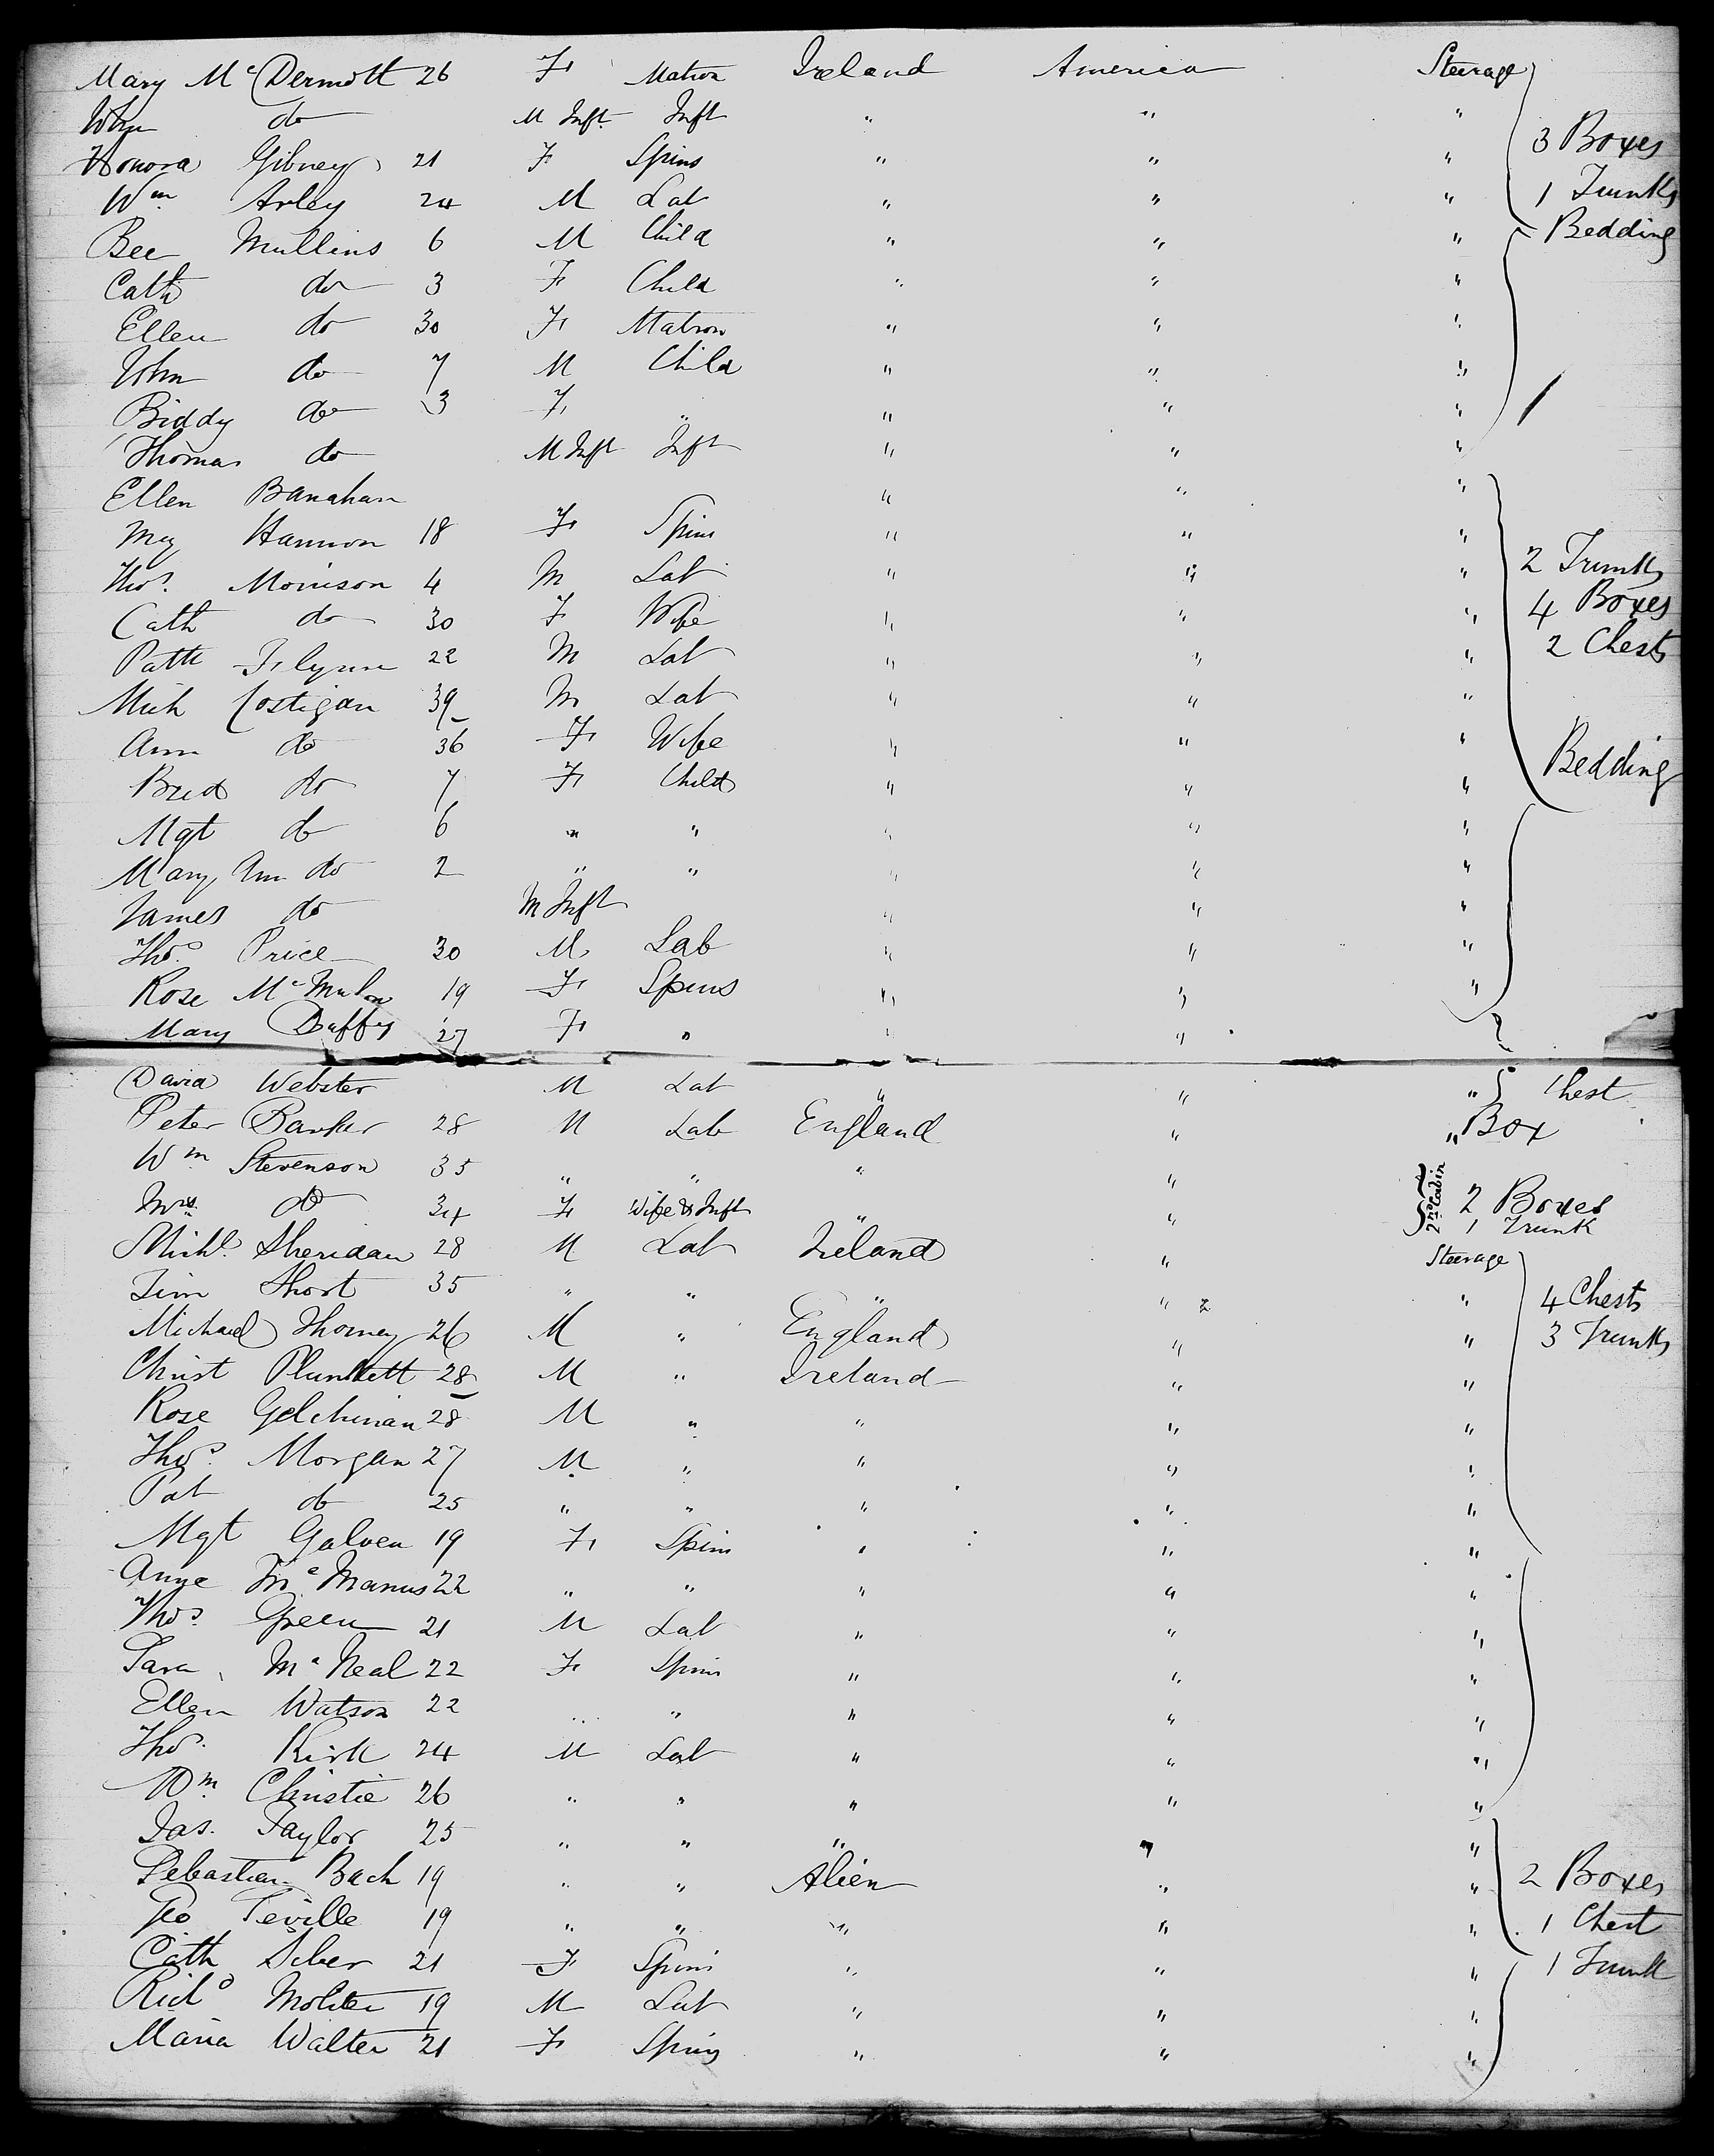 Mary McDermott 26 F Matron Ireland America Steerage
John do M Inft Inft " " "
Honora Gibney 21 F Spins " " " 3 Boxes
Wm Arley 24 M Lab " " " 1 Trunks
Bee Mullins 6 M Child " " " Bedding
Cath do 3 F Child " " "
Ellen do 30 F Matron " " "
John do 7 M Child " " "
Biddy do 3 F " " " "
Thomas do M Inft Inft " " "
Ellen Banahan " " "
Mgy Hannon 18 F Spins " " "
Thos. Morrison 4 M Lab " " " 2 Trunks
Cath do 30 F Wife " " " 4 Boxes
Patk Flynn 22 M Lab " " " 2 Chests
Mich Costigan 39 M Lab " " "
Ann do 36 F Wife " " "
Brid do 7 F Child " " " Bedding
Mgt do 6 " " " " "
Mary Ann do 2 " " " " "
James do M Inft " " "
Thos. Price 30 M Lab " " "
Rose 19 F Spins " " "
Mary Duffy 27 F " " "
David Webster M Lab " " " Chest
Peter Barker 28 M Lab England " " Box
Wm Stevenson 35 " " " "
Mrs. do 34 F Wife & Inft " " 2nd Cabin 2 Boxes
1 Trunk
Michl. Sheridan 28 M Lab Ireland " Steerage
Tim Short 35 " " " " " 4 Chests
Michael Thorney 26 M " England " " 3 Trunks
Christ Plunkett 28 M " Ireland " "
Rose 28 M " " " "
Thos. Morgan 27 M " " " "
Pat do 25 " " " " "
Mgt Galven 19 F Spins " " "
Anne McManus 22 " " " " "
Thos Green 21 M Lab " " "
Sara McNeal 22 F Spins " " "
Ellen Watson 22 " " " " "
Thos. Kirk 24 M Lab " " "
Wm. Christie 26 " " " " "
Jas. Taylor 25 " " " " "
Sebastian Bach 19 " " Alien " " 2 Boxes
Geo Seville 19 " " " " " 1 Chest
Cath Siber 21 F Spins " " " 1 Trunk
Richd Molter 19 M Lab " " "
Maria Walter 21 F Spins " " "